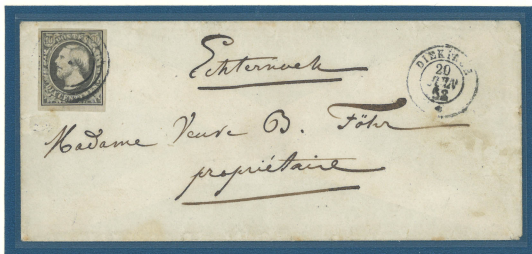 Echternach
DIEKIRCH
20
JUIN
Madame Veuve B. Föhr
propriétaire